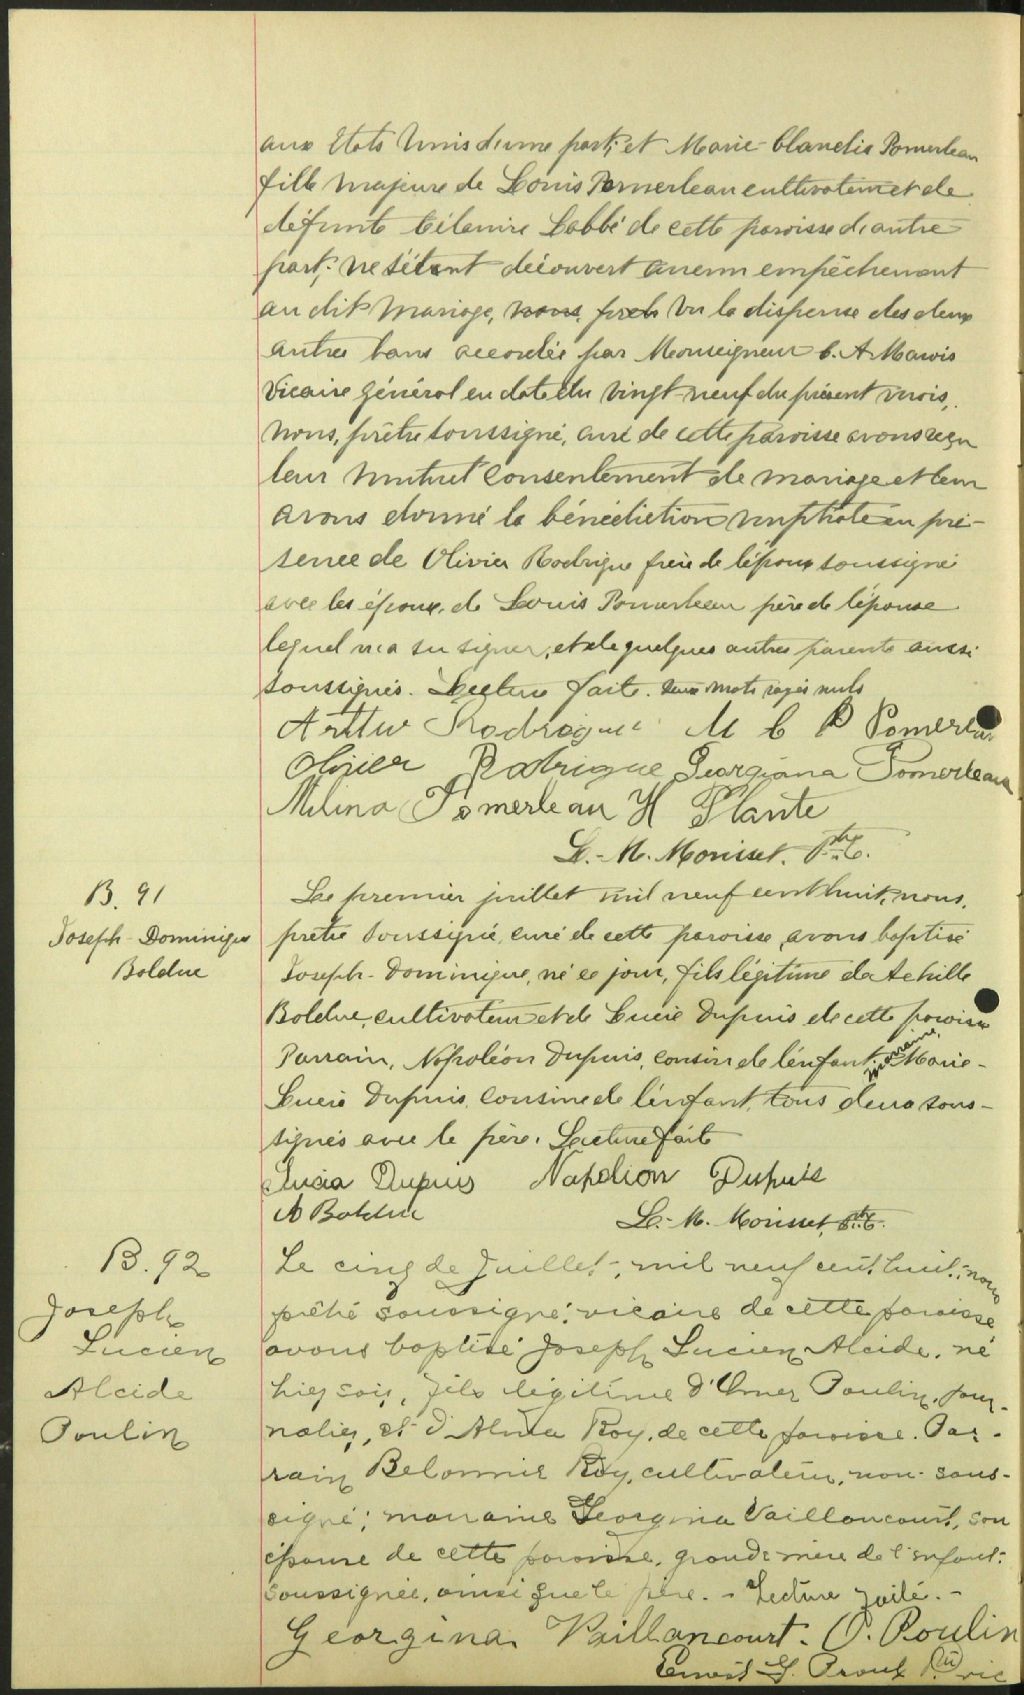 aux Etats Unis d'une part, et Marie-Clandis Pomerleau
fille majeure de Louis Pomerleau cultivateur et de
défunte Célanire Labbé de cette paroisse d'autre
part; ne s'étant découvert aucun empêchement
au dit mariage, nous, prêtre vu la dispense des deux
autres bans accordée par Monseigneur C. A. Marois
Vicaire général en date du vingt-neuf du présent mois,
nous, prêtre soussigné, curé de cette paroisse avons reçu
leur mutuel consentement de mariage et leur
avons donné la bénédiction nuptiale en pré-
sence de Olivier Rodrigue frère de l'époux soussigné
avec les époux, de Louis Pomerleau père de l'épouse
lequel n'a su signer, et de quelques autres parents aussi
soussignés. Lecture faite. deux mots rayés nuls
Arthur Rodrigue M C P Pomerleau
Olivier Rodrigue Georgiana Pomerleau
Mélina Pomerleau H Plante
L.-M. Morisset. Ptre C.
B. 91
Joseph-Dominique
Bolduc
Le premier juillet mil neuf cent huit, nous,
prêtre soussigné, curé de cette paroisse, avons baptisé
Joseph-Dominique, né ce jour, fils légitime de Achille
Bolduc, cultivateur et de Lucie Dupuis de cette paroisse
Parrain, Napoléon Dupuis, cousin de l'enfant, marraine Marie-
Lucia Dupuis, cousine de l'enfant, tous deux sous-
signés avec le père. Lecture faite
Lucia Dupuis Napoléon Dupuis
A Bolduc
L.-M. Morisset, Ptre C.
B. 92
Joseph
Lucien
Alcide
Poulin
Le cinq de Juillet, mil neuf cent huit, nous
prêtre soussigné, vicaire de cette paroisse
avons baptisé Joseph Lucien Alcide, né
hier soir, fils légitime d'Omer Poulin, jour-
nalier, et d'Alma Roy, de cette paroisse. Par-
rain Belonnie Roy, cultivateur, non sous-
signé; marraine Georgina Vaillancourt, son
épouse de cette paroisse, grands-mère de l'enfant
soussignée, ainsi que le père. - Lecture faite. -
Georgina Vaillancourt. O. Poulin
Ernest G. Proulx Ptre vic